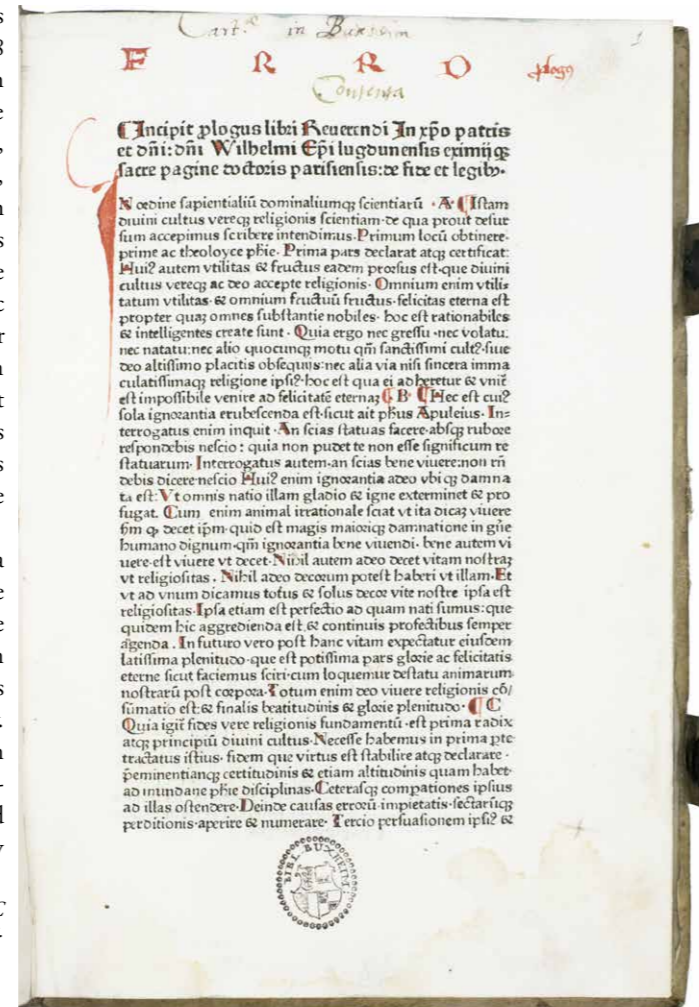 Cart.ᵃ in Buxheim
1
E R R O plogꝰ
Contenta
Incipit ꝓlogus libri Reuerendi In xp̄o patris
et dn̄i: dn̄i Wilhelmi Ep̄i lugdunensis eximij qꝫ
sacre pagine doctoris parisiensis: de fide et legibꝫ.
IN ordine sapientialiū dominaliumqꝫ scientiarū · A · Istam
diuini cultus vereqꝫ religionis scientiam·de qua prout desur
sum accepimus scribere intendimus·Primum locū obtinere·
prime ac theoloyce ph̄ie·Prima pars declarat atqꝫ certificat:
Huiꝰ autem vtilitas & fructus eadem prorsus est·que diuini
cultus vereqꝫ ac deo accepte religionis·Omnium enim vtili⸗
tatum vtilitas·& omnium fructuū fructus·felicitas eterna est
propter quaꝫ omnes substantie nobiles·hoc est rationabiles
& intelligentes create sunt·Quia ergo nec gressu·nec volatu:
nec natatu:nec alio quocunqꝫ motu qm̄ sanctissimi cultꝰ·siue
deo altissimo placitis obsequijs:nec alia via nisi sincera imma
culatissimaqꝫ religione ipsiꝰ·hoc est qua ei adheretur & vnit̄
est impossibile venire ad felicitatē eternaꝫ B· Hec est cuiꝰ
sola ignorantia erubescenda est·sicut ait ph̄us Apuleius·In⸗
terrogatus enim inquit·An scias statuas facere·absqꝫ rubore
respondebis nescio: quia non pudet te non esse significum re
statuarum·Interrogatus autem·an scias bene viuere:non rn̄
debis dicere·nescio Huiꝰ enim ignorantia adeo vbiqꝫ damna
ta est:Vt omnis natio illam gladio & igne exterminet & pro
fugat. Cum enim animal irrationale sciat vt ita dicaꝫ viuere
sm̄ qꝫ decet ip̄m·quid est magis maiorisqꝫ damnatione in gn̄e
humano dignum·qm̄ ignorantia bene viuendi·bene autem vi
uere·est viuere vt decet·Nihil autem adeo decet vitam nostraꝫ
vt religiositas. Nihil adeo decorum potest haberi vt illam·Et
vt ad vnum dicamus totus & solus decor vite nostre ipsa est
religiositas·Ipsa etiam est perfectio ad quam nati sumus:que
quidem hic aggredienda est·& continuis profectibus semper
agenda. In futuro vero post hanc vitam expectatur eiusdem
latissima plenitudo·que est potissima pars glorie ac felicitatis
eterne sicut faciemus sciri·cum loquemur destatu animarum
nostrarū post corpora·Totum enim deo viuere religionis cō/
sūmatio est:& finalis beatitudinis & glorie plenitudo· C
Quia igit̄ fides vere religionis fundamentū·est prima radix
atqꝫ principiū diuini cultus·Necesse habemus in prima pte
tractatus istius·fidem que virtus est stabilire atqꝫ declarare·
p̄eminentianqꝫ certitudinis & etiam altitudinis quam habet·
ad mundane ph̄ie disciplinas·Ceterasqꝫ compationes ipsius
ad illas ostendere·Deinde causas errorū·impietatis·sectarūqꝫ
perditionis·aperire & numerare· Tercio persuasionem ipsiꝰ &
BIBL. BUXHEIM: